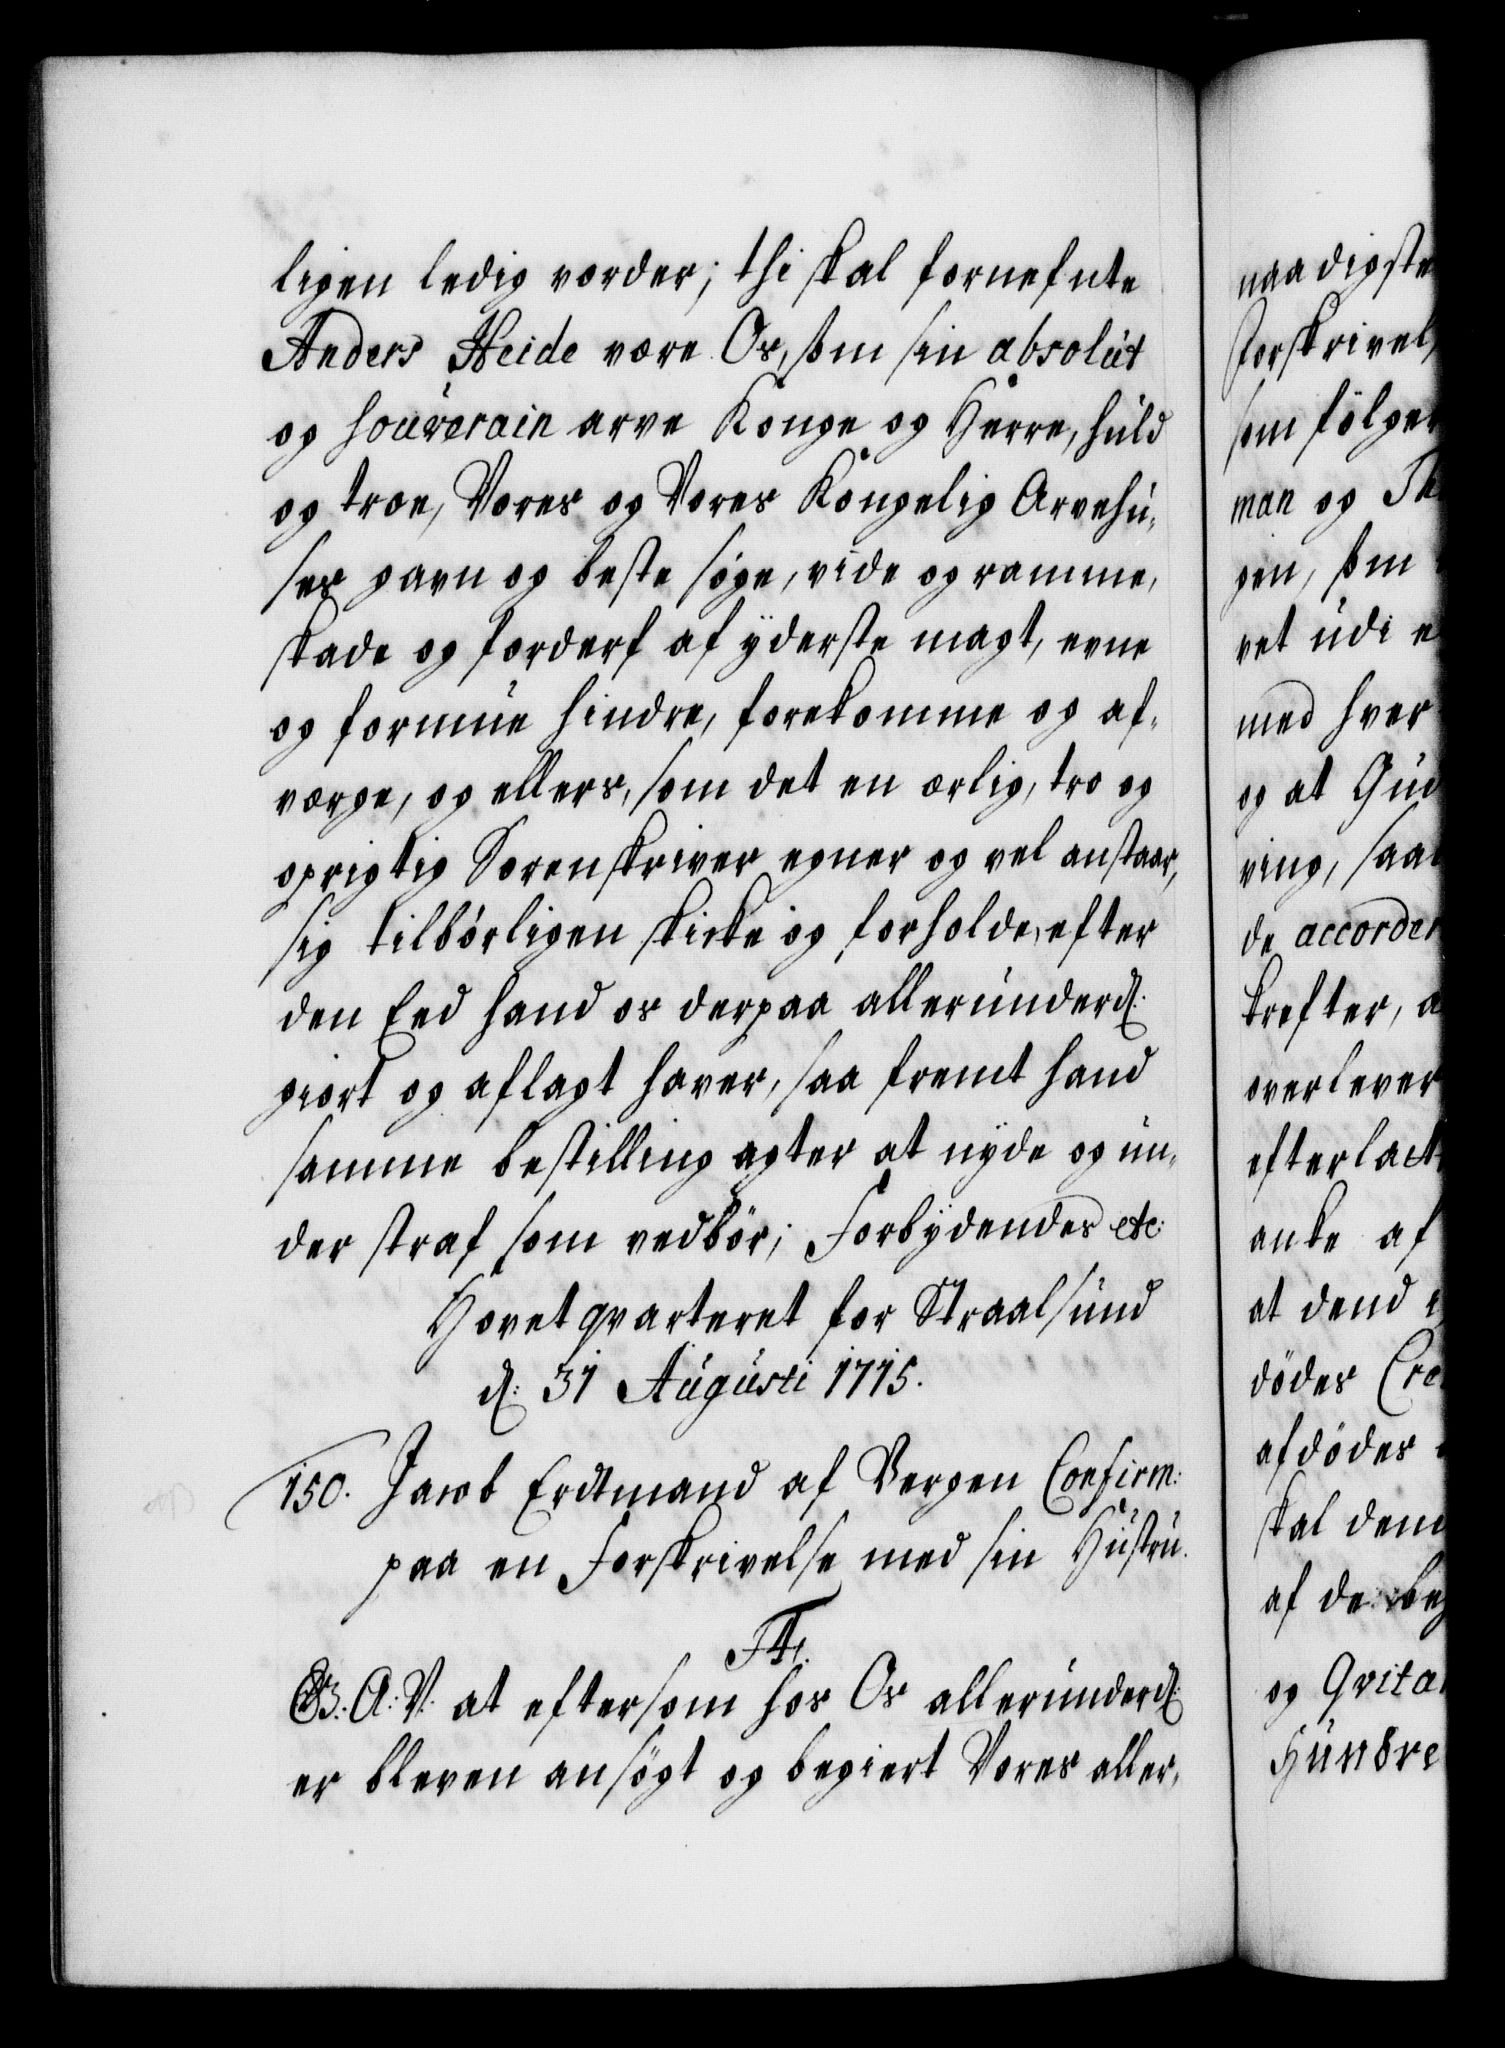 ligen ledig vorder; thi skal fornefnte
Anders Heide være Os, som sin absolut
og souverain arve Konge og Herre, huld
og troe, Vores og Vores Kongelig Arvehu¬
ses gavn og beste søge, vide og ramme,
skade og forderf af yderste magt, evne
og formue hindre, forekomme og af¬
værge, og ellers, som det en ærlig, tro og
oprigtig Sorenskriver egner og vel anstaar,
sig tilbørligen skicke og forholde, efter
den Eed hand os derpaa allerunderd:
giort og aflagt haver, saa fremt hand
samme bestilling agter at nyde og un¬
der straf som vedbør; Forbydendes etc:
Hovetqvarteret for Straalsund
d: 31 Augusti 1715.
150. Jacob Erdtmand af Bergen Confirm:
paa en Forskrivelse med sin Hustru.
F4.
G. A: V: at eftersom hos Os allerunderd:
er bleven ansøgt og begiert Vores aller¬
naadigste
Forskrivel
som følger
man og
gen, som
vet udi e
med hver
og at Gud
ving, saa
de accorder
krefter, a
overlever
efterlatt
anke af
at dend
dødes Cre
afdødes
skal dem
af de beg
og Qvita
Hundre